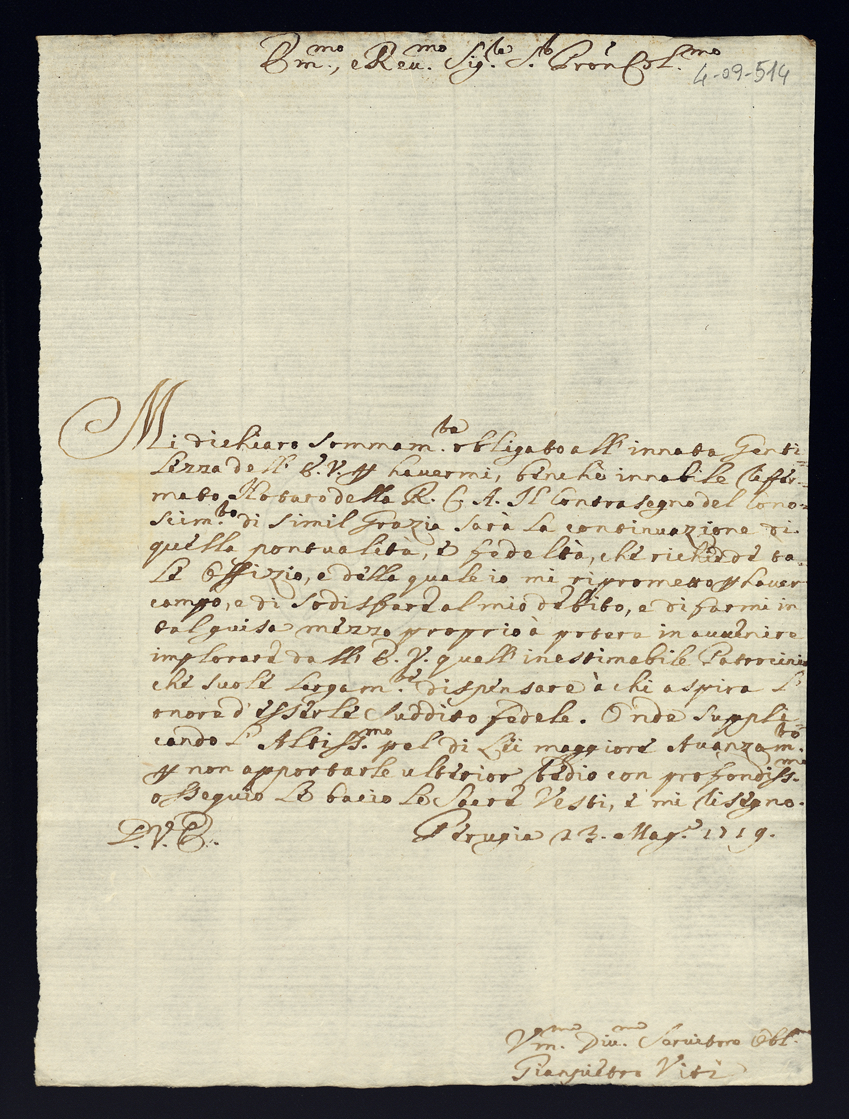 E.mo, e Reu.mo Sig.re S.re Pron Col.mo
4-09-514
Mi dichiaro sommam.te obligato all' innata Genti=
lezza dell' E. V. p hauermi, benche innabile
mato Notaro della R. C. A. Il Contrasegno del Cono=
scim.to di simil Grazia sarà la continuazione di
quella pontualità, e fedeltà, che richiede ta
le Offizio, e della quale io mi riprometto p hauer
campo, e di sodisfare al mio debito, e di farmi in
tal guisa mezzo proprio à potere in auuenire
implorare dall' E. V. quell' inestimabile Patrocinio
che suole largam.te dispensare à chi aspira l'
onore d' esserle suddito fedele. Onde suppli=
cando l' Altiss.mo pel di Lei maggiore Auanzam.to
p non apportarle ulterior tedio con profondiss.mo
ossequio le bacio le Sacre Vesti, e mi
D. V. E. Perugia 23. Mag.o 1719.
Vm.mo Diu.mo Seruitore Obl.mo
Gianpietro Viti